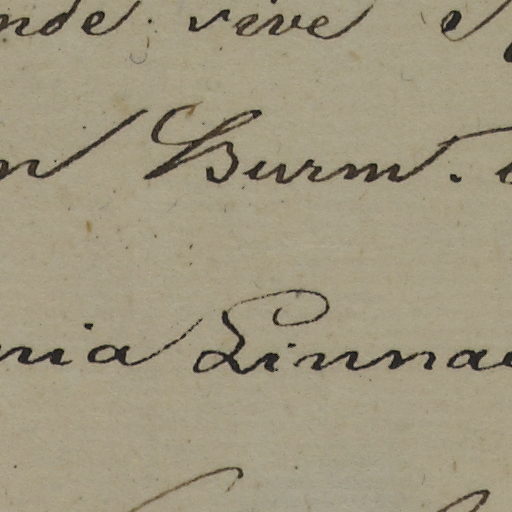 nde vive
n Burm.
nia Linnae